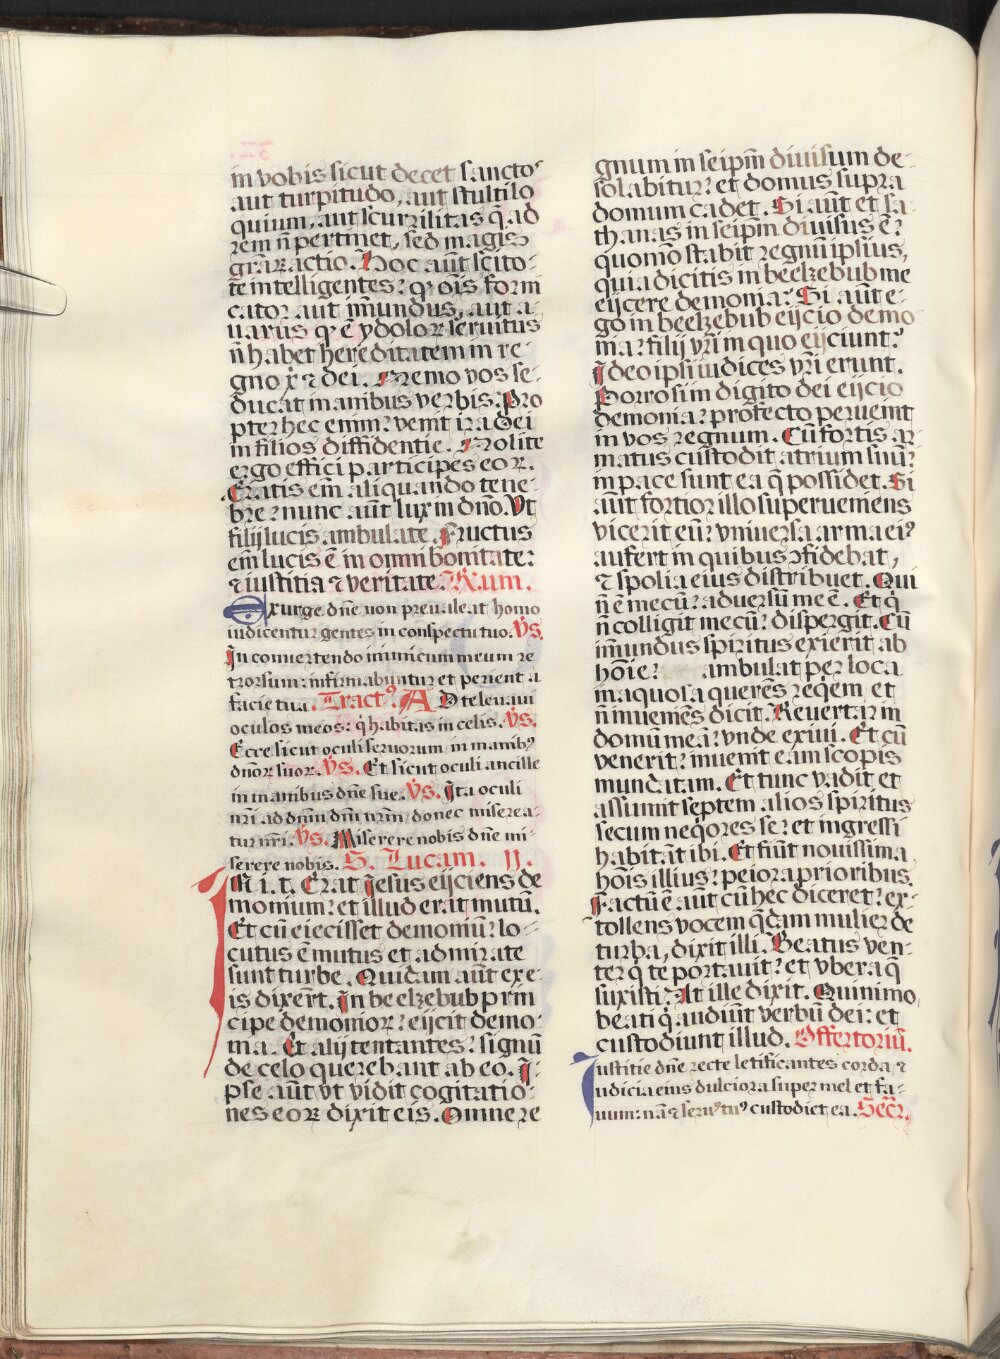 in vobis sicut decet sancto⁹
aut turpitudo, aut stultilo
quium, aut scurrilitas q̃ ad
rem ñ pertinet, sed magis
gr̃aꝝ actio. Hoc aũt scito-
te intelligentes: ꝙ õis forni
cator aut im̃undus, aut a-
uarus qꝫ ẽ ydoloꝝ seruitus
ñ habet hereditatem in re-
gno xp̃i ⁊ dei. Nemo vos se-
ducat inanibus verbis. Pro
pter hec enim: venit ira dei
in filios diffidentie. Nolite
ergo effici participes eoꝝ.
Eratis em̃ aliquando tene-
bre: nunc aũt lux in dño. Vt
filij lucis ambulate. Fructus
em̃ lucis ẽ in omni bonitate:
⁊ iustitia ⁊ veritate. R̃um.
Exurge dñe non preualeat homo
iudicentur gentes in conspectu tuo. V̾s.
In conuertendo inimicum meum re
trorsum: infirmabuntur et perient a
facie tua. Tract⁹. AD te leuaui
oculos meos: q̇ habitas in celis. V̾s.
Ecce sicut oculi seruorum in manib⁹
dñoꝝ suoꝝ. V̾s. Et sicut oculi ancille
in manibus dñe sue. V̾s. Ita oculi
nr̃i ad dñm dm̃ nr̃m, donec miserea-
tur nr̃i. V̾s. Miserere nobis dñe mi-
serere nobis. S. Lucam. 11.
IÑ i. t. Erat Jesus eijciens de
monium: et illud erat mutũ.
Et cũ eiecisset demoniũ: lo-
cutus ẽ mutus et admirate
sunt turbe. Quidam aũt exe-
is dixert̃. In beelzebub prin
cipe demonioꝝ: eijcit demo-
nia. Et alij tentantes: signũ
de celo querebant ab eo. I-
pse aũt vt vidit cogitatio-
nes eoꝝ dixit eis. Omne re
gnum in seipm̃ diuisum de-
solabitur: et domus supra
domum cadet. Si aũt et sa-
thanas in seipm̃ diuisus ẽ:
quomõ stabit regnũ ipsius,
quia dicitis in beelzebub me
eijcere demonia: Si aũt e-
go in beelzebub eijcio demo
nia: filij vr̃i in quo eijciunt:
Ideo ipsi iudices vr̃i erunt.
Porro si in digito dei eijcio
demonia: profecto peruenit
in vos regnum. Cũ fortis ar
matus custodit atrium suũ:
in pace sunt ea q̃ possidet. Si
aũt fortior illo superueniens
vicerit eũ: vniuersa arma ei⁹
aufert in quibus ꝯfidebat,
⁊ spolia eius distribuet. Qui
ñ ẽ mecũ: aduersũ me ẽ. Et q̇
ñ colligit mecũ: dispergit. Cũ
im̃undus spiritus exierit ab
hoĩe: ambulat per loca
inaquosa querẽs reqẽm et
ñ inueniẽs dicit. Reuertar in
domũ meã: vnde exiui. Et cũ
venerit: inuenit eam scopis
mundatam. Et tunc vadit et
assumit septem alios spiritus
secum neq̇ores se: et ingressi
habitãt ibi. Et fiũt nouissima
hoĩs illius: peiora prioribus.
Factũ ẽ aũt cũ hec diceret: ex-
tollens vocem q̃dam mulier de
turba, dixit illi. Beatus ven-
ter q̇ te portauit: et vbera q̃
suxisti. At ille dixit. Quinimo
beati q̇ audiũt verbũ dei: et
custodiunt illud. Offertoriũ.
Iustitie dñe recte letificantes corda, ⁊
iudicia eius dulciora super mel et fa-
uum: nã ⁊ seru⁹ tu⁹ custodiet ea. Secr̃.